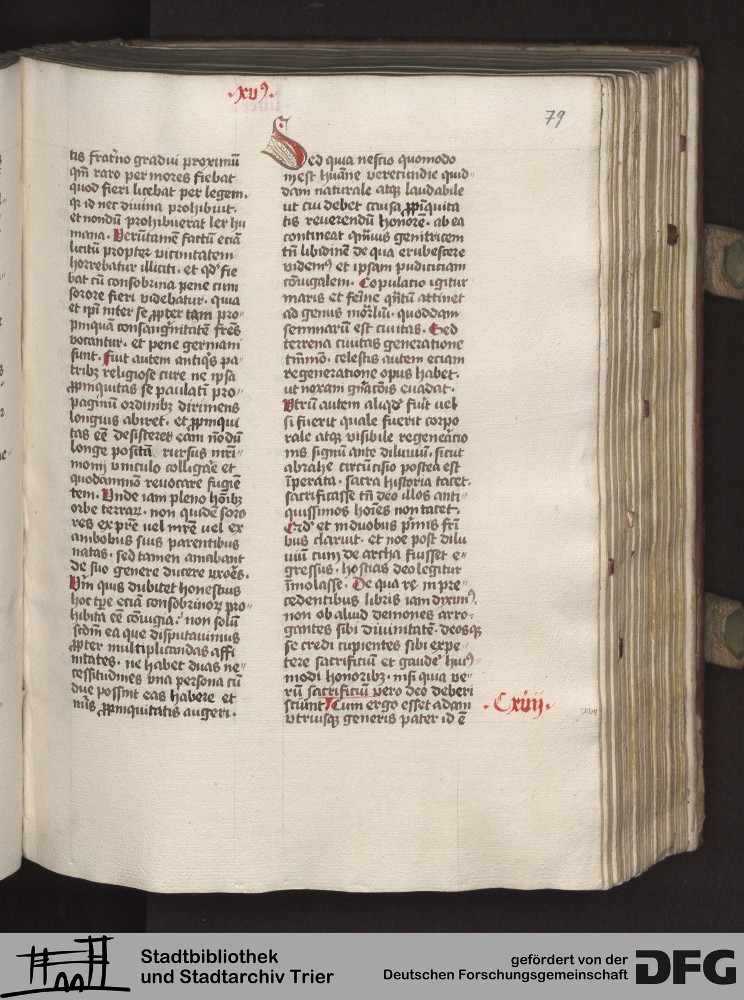 ·xvꝰ·
79
tis fratno gradui proximū
qm̄ raro per mores fiebat
quod fieri licebat per legem.
q̄ id nec diuina prohibuit.
et nondū prohibuerat lex hu
mana. Verūtamē factū eciā
licitū propter vicinitatem
horrebatur illiciti. et qd' fie
bat cū consobrina pene cum
sorore fieri videbatur. quia
et ip̄i inter se ꝓpter tam pro
pinquā consangnitatē fr̄es
vocantur. et pene germani
sunt. fuit autem antiqis pa
tribꝫ religiose cure ne ipsa
ꝓpinquitas se paulati pro
paginū ordinibꝫ dirimens
longius abiret. et ꝓpinqui
tas eē desisteret eam nōdū
longe positā rursus mri
monij vinculo colligare et
quodāmō reuocare fugiē
tem. Vnde iam pleno hoībꝫ
orbe terraꝝ. non quidē soro
res ex pr̄e uel mr̄e uel ex
ambobus suis parentibus
natas. sed tamen amabant
de suo genere ducere vxores.
Vm quis dubitet honestius
hoc tpe eciā consobrinoꝝ pro
hibita eē cōiugia. non solū
scdm̄ ea que disputauimus
ꝓpter multiplicandas affi
nitates. ne habet duas ne
cessitudines vna persona cū
due possint eas habere et
nūs ꝓpinquitatis augeri.
Sed quia nescio quomodo
inest hūane verecundie quid
dam naturale atqꝫ laudabile
ut cui debet causa ꝓpīquita
tis reuerendū honorē. ab ea
contineat qmuis genitricem
tn̄ libidinē de qua erubescere
videmꝰ et ipsam pudiciciam
cōiugalem. Copulatio igitur
maris et feīe qntū attinet
ad genus mortaliū. quoddam
seminariū est ciuitatis. Sed
terrena ciuitas generatione
tm̄mō. celestis autem eciam
regeneratione opus habet.
ut noxam gnatōis euadat.
Vtrū autem aliqd' fuit uel
si fuerit quale fuerit corpo
rale atqꝫ visibile regeneracio
nis signū ante diluuiū. sicut
abrahe circūcisio postea est
īperata. sacra historia tacet.
sacrificasse tn̄ deo illos anti
quissimos hoīes non tacet.
Qd' et in duobus pimis fri
bus claruit. et noe post dilu
uiū cum de archa fuisset e
gressus. hostias deo legitur
īmolasse. De qua re in pre
cedentibus libris iam diximꝰ.
non ob aliud demones arro
gantes sibi diuinitatē. deosqꝫ
se credi cupientes sibi expe
tere sacrificiū et gaude' huiꝰ
modi honoribꝫ. nisi quia ve
rū sacrificiū vero deo deberi
sciunt Cum ergo esset adam
vtriusqꝫ generis pater id ē
·Cxiiij·
Stadtbibliothek
und Stadtarchiv Trier
gefördert von der
Deutschen Forschungsgemeinschaft
DFG